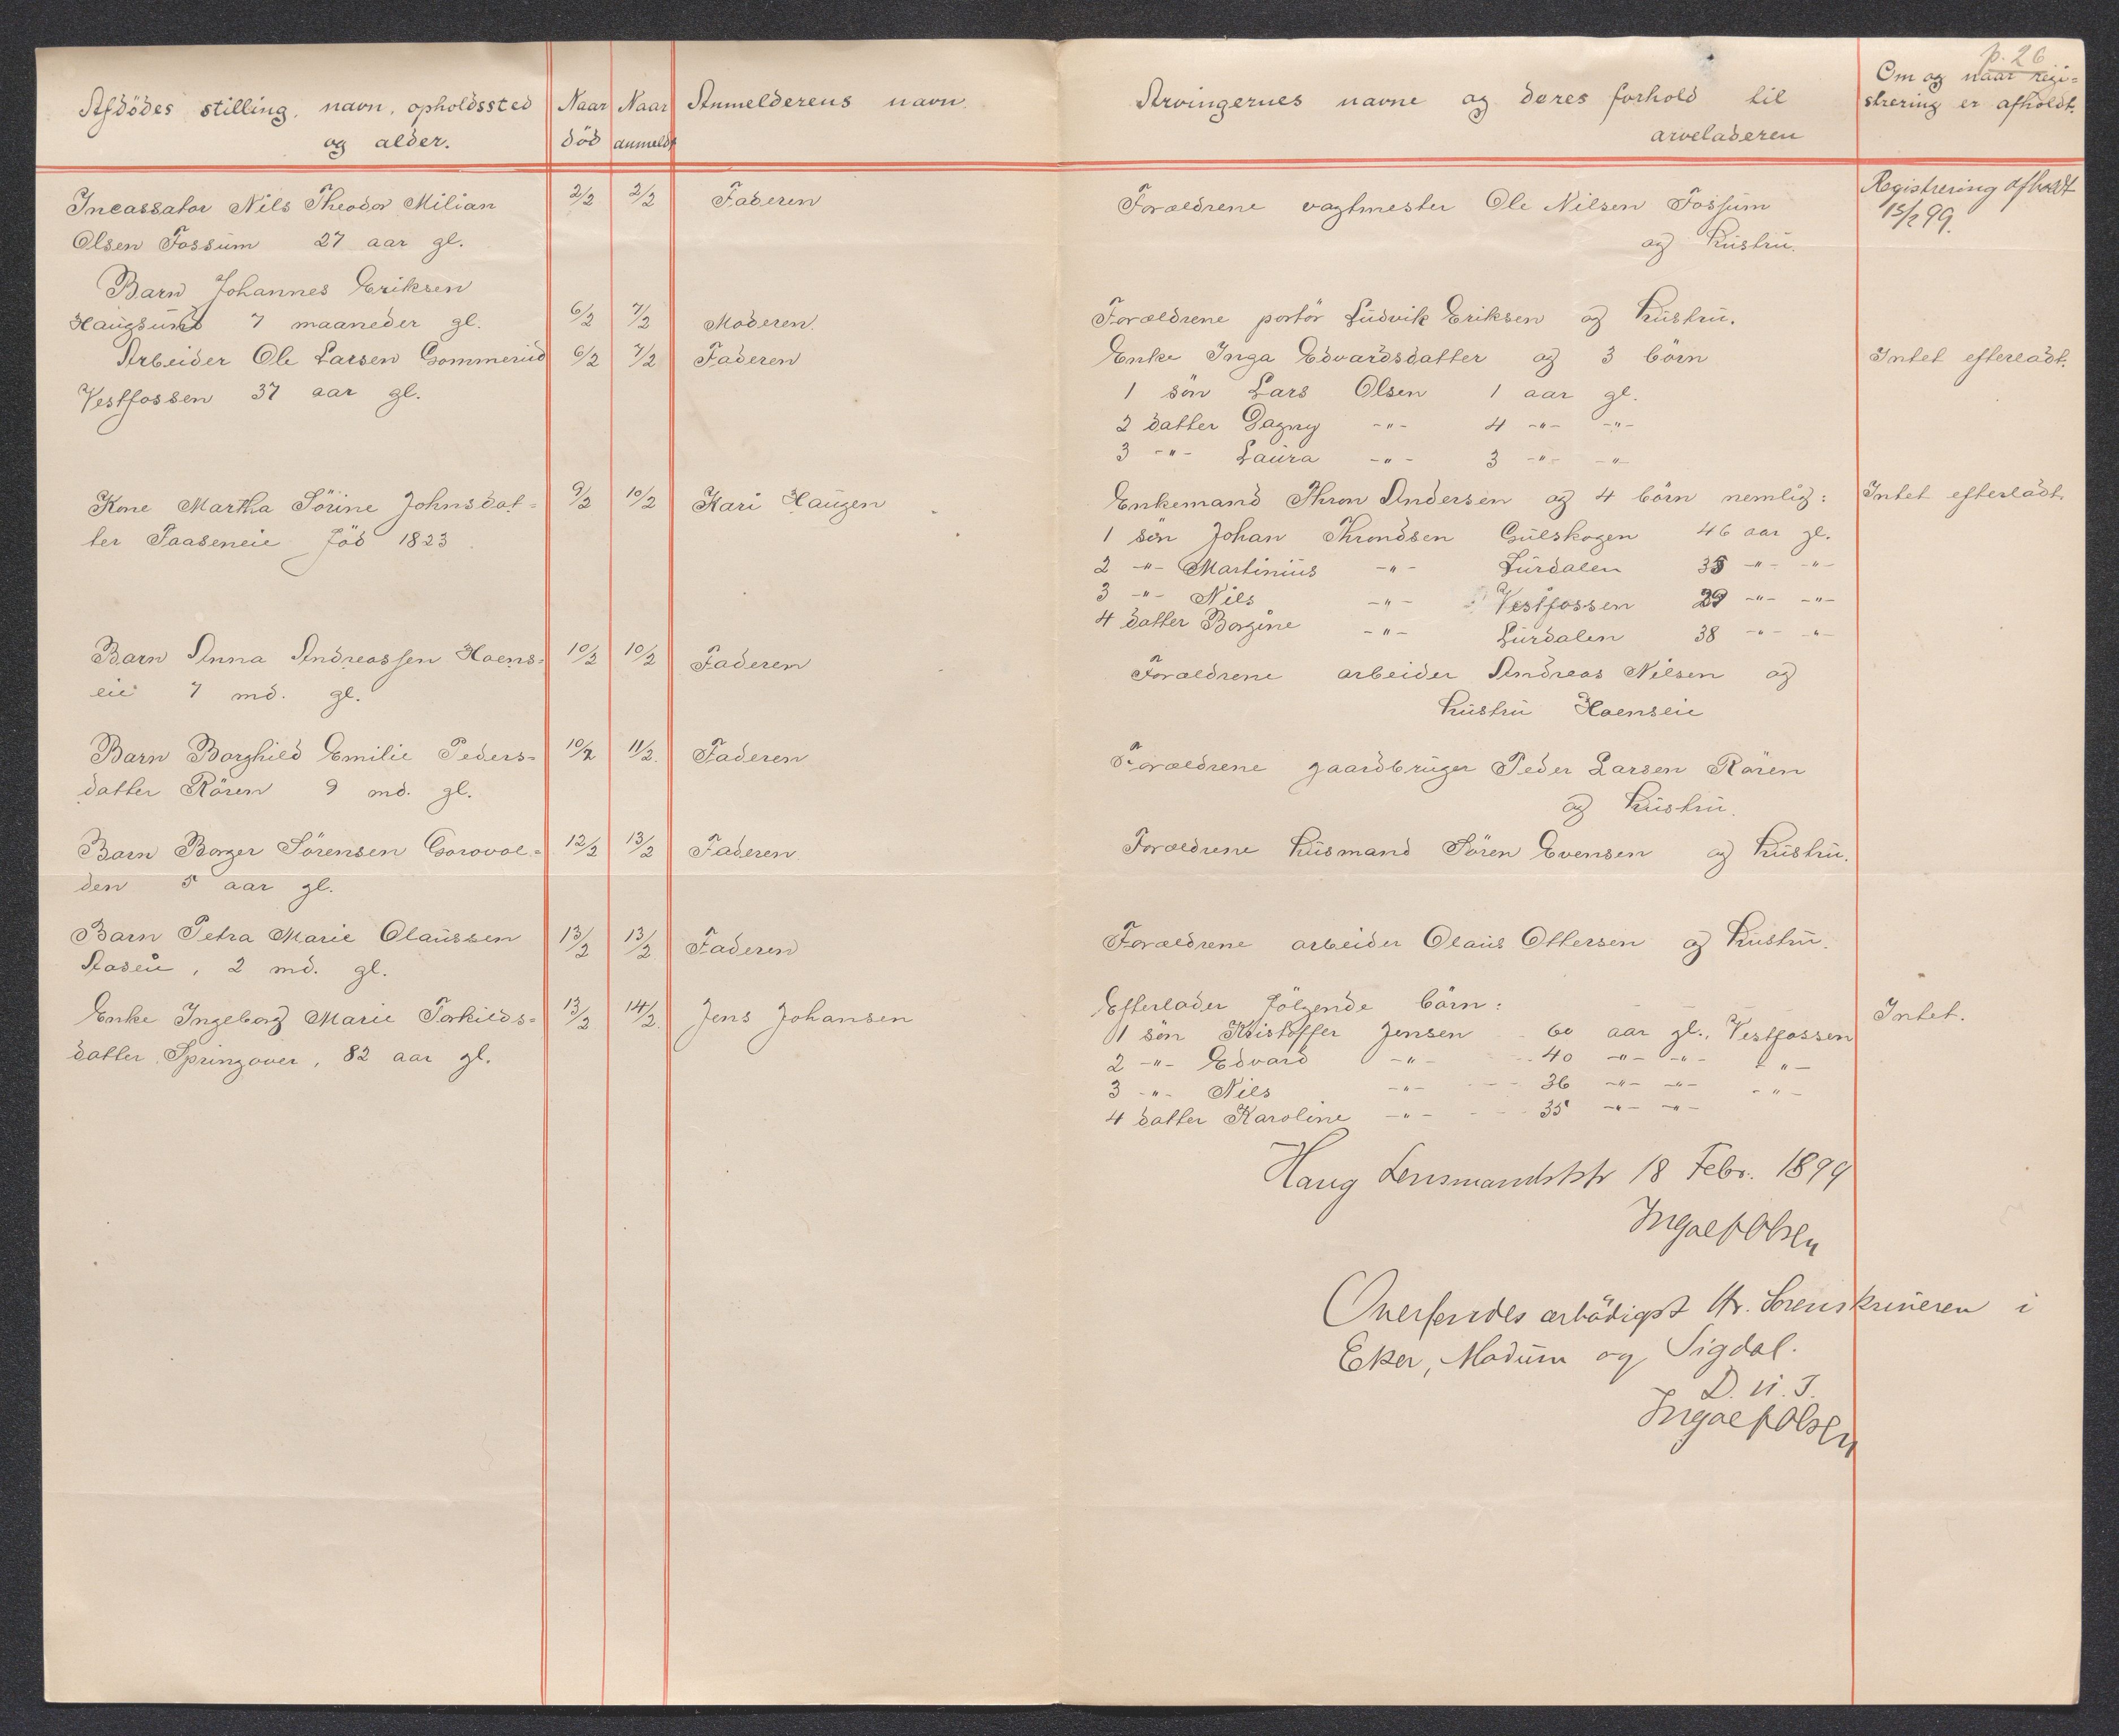 p. 26
Afdödes stilling, navn, opholdssted
og alder.
Naar
död
Naar
anmeldt
Anmelderens navn.
Arvingernes navne og deres forhold til
arveladeren
Om og naar regi=
strering er afholdt.
Incassator Nils Theodor Milian
Olsen Fossum 27 aar gl.
2/2 2/2 Faderen
Forældrene vagtmester Ole Nilsen Fossum
og hustru.
Registrering afholdt
15/2 99.
Barn Johannes Eriksen
Haugsund 7 maaneder gl.
6/2 7/2 Moderen.
Forældrene portör Ludvik Eriksen og hustru.
Arbeider Ole Larsen Gommerud
Vestfossen 37 aar gl.
6/2 7/2 Faderen
Enke Inga Edvardsdatter og 3 börn
1 sön Lars Olsen 1 aar gl.
2 datter Dagny -"- 4 -"- -"-
3 -"- Laura -"- 3 -"- -"-
Intet efterladt.
Kone Martha Sörine Johnsdat=
ter Paaseneie föd 1823
9/2 10/2 Kari Haugen
Enkemand Thron Andersen og 4 börn nemlig:
1 sön Johan Throndsen Gulskogen 46 aar gl.
2 -"- Martinius -"- Lurdalen 35 -"- -"-
3 -"- Nils -"- Vestfossen 29 -"- -"-
4 datter Borgine -"- Lurdalen 38 -"- -"-
Intet efterladt.
Barn Anna Andreassen Hoens=
eie 7 md. gl.
10/2 10/2 Faderen
Forældrene arbeider Andreas Nilsen og
hustru Hoenseie
Barn Borghild Emilie Peders=
datter Rören 9 md. gl.
10/2 11/2. Faderen
Forældrene gaardbruger Peder Larsen Rören
og hustru.
Barn Borger Sörensen Gorovol=
den 5 aar gl.
12/2 13/2 Faderen
Forældrene husmand Sören Evensen og hustru.
Barn Petra Marie Olaussen
Aasen, 2 md. gl.
13/2 13/2 Faderen
Forældrene arbeider Olaus Ottersen og hustru.
Enke Ingeborg Marie Torkilds=
datter Springover, 82 aar gl.
13/2 14/2. Jens Johansen
Efterlader fölgende börn:
1 sön Kristoffer Jensen 60 aar gl., Vestfossen
2 -"- Edvard -"- 40 -"- -"- -"-
3 -"- Nils -"- 36 -"- -"- -"-
4 datter Karoline -"- 35 -"- -"-
Intet.
Haug Lensmandsktr 18 Febr. 1899
Ingolf Olsen
Oversendes ærbödigst Hr. Sorenskriveren i
Eker, Modum og Sigdal.
D. u. s.
Ingolf Olsen